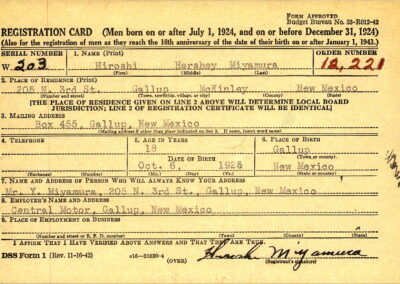 FORM APPROVED
Budget Bureau No. 33-R012-42
REGISTRATION CARD (Men born on or after July 1, 1924, and on or before December 31, 1924)
(Also for the registration of men as they reach the 18th anniversary of the date of their birth on or after January 1, 1943.)
SERIAL NUMBER 1. NAME (Print) ORDER NUMBER
W 203 Hiroshi Hershey Miyamura 12,221
(First) (Middle) (Last)
2. PLACE OF RESIDENCE (Print)
205 N. 3rd St. Gallup McKinley New Mexico
(Number and street) (Town, township, village, or city) (County) (State)
[THE PLACE OF RESIDENCE GIVEN ON LINE 2 ABOVE WILL DETERMINE LOCAL BOARD
JURISDICTION; LINE 2 OF REGISTRATION CERTIFICATE WILL BE IDENTICAL]
3. MAILING ADDRESS
Box 455, Gallup, New Mexico
(Mailing address if other than place indicated on line 2. If same, insert word same)
4. TELEPHONE 5. AGE IN YEARS 6. PLACE OF BIRTH
18 Gallup
DATE OF BIRTH (Town or county)
Oct. 6, 1925 New Mexico
(Exchange) (Number) (Mo.) (Day) (Yr.) (State or country)
7. NAME AND ADDRESS OF PERSON WHO WILL ALWAYS KNOW YOUR ADDRESS
Mr. Y. Miyamura, 205 N. 3rd St., Gallup, New Mexico
8. EMPLOYER'S NAME AND ADDRESS
Central Motor, Gallup, New Mexico
9. PLACE OF EMPLOYMENT OR BUSINESS
(Number and street or R. F. D. number) (Town) (County) (State)
I AFFIRM THAT I HAVE VERIFIED ABOVE ANSWERS AND THAT THEY ARE TRUE.
DSS Form 1 (Rev. 11-16-42) (OVER) Hiroshi Miyamura
(Registrant's signature)